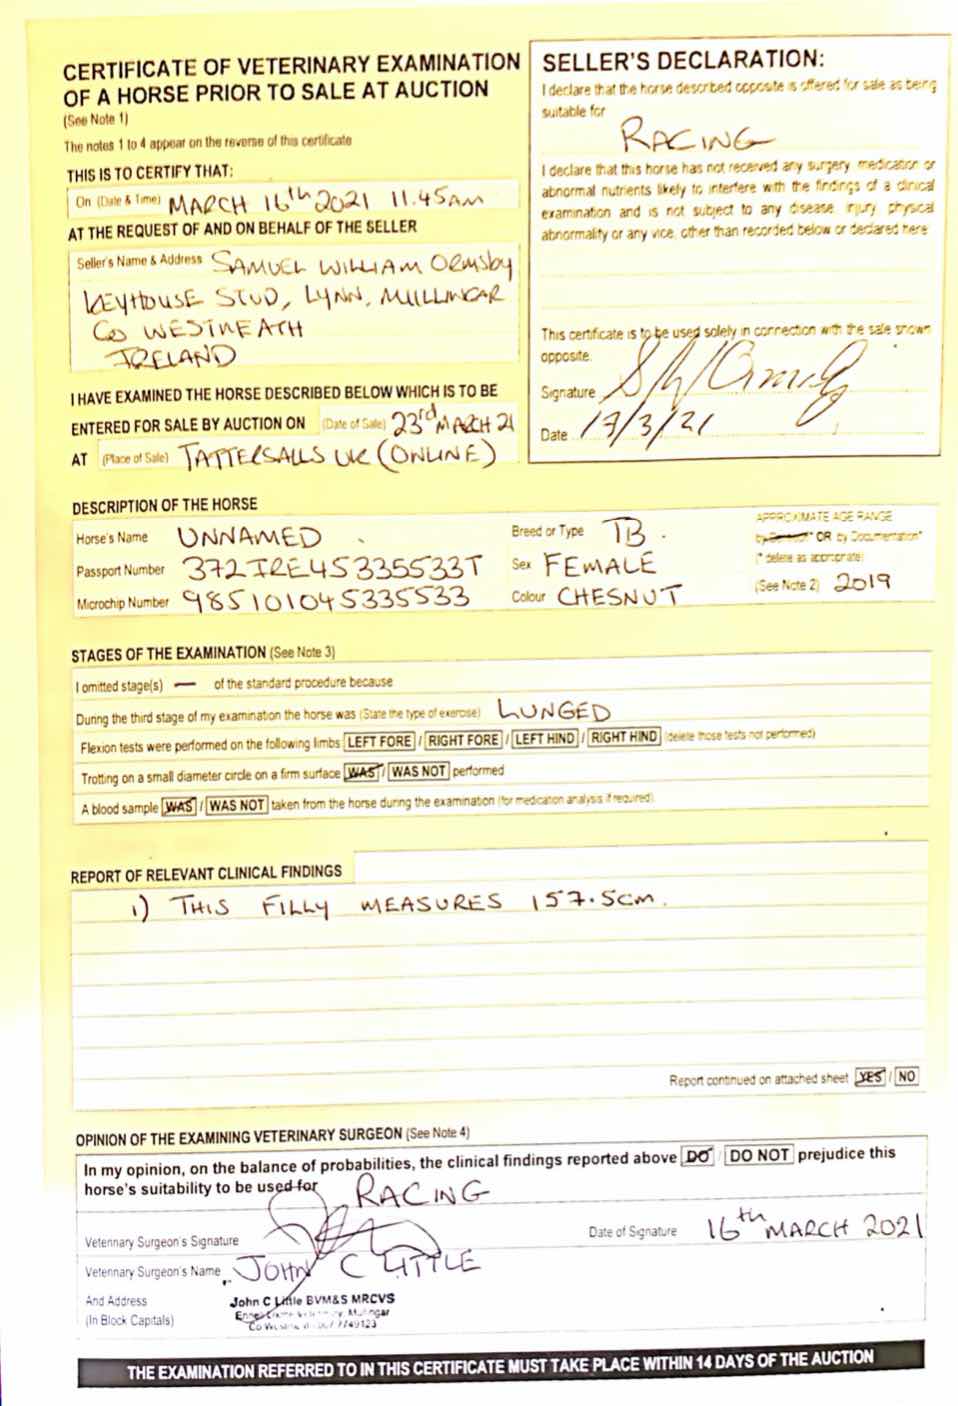 CERTIFICATE OF VETERINARY EXAMINATION
OF A HORSE PRIOR TO SALE AT AUCTION
(See Note 1)
The notes 1 to 4 appear on the reverse of this certificate
THIS IS TO CERTIFY THAT:
On (Date & Time) MARCH 16th 2021 11.45AM
AT THE REQUEST OF AND ON BEHALF OF THE SELLER
Seller's Name & Address SAMUEL WILLIAM Ormsby
KEYHOUSE STUD, LYNN, MULLINGAR
Co WESTMEATH
IRELAND
I HAVE EXAMINED THE HORSE DESCRIBED BELOW WHICH IS TO BE
ENTERED FOR SALE BY AUCTION ON (Date of Sale) 23rd MARCH 21
AT (Place of Sale) TATTERSALLS UK (ONLINE)
SELLER'S DECLARATION:
I declare that the horse described opposite is offered for sale as being
suitable for
RACING
I declare that this horse has not received any surgery medication or
abnormal nutrients likely to interfere with the findings of a clinical
examination and is not subject to any disease injury physical
abnormality or any vice, other than recorded below or declared here
This certificate is to be used solely in connection with the sale shown
opposite.
Signature
Date 17/3/21
DESCRIPTION OF THE HORSE
Horse's Name UNNAMED Breed or Type TB. APPROXIMATE AGE RANGE
by OR by Documentation*
(* delete as appropriate)
Passport Number 372IRE45335533T Sex FEMALE
(See Note 2) 2019
Microchip Number 985101045335533 Colour CHESNUT
STAGES OF THE EXAMINATION (See Note 3)
I omitted stage(s) — of the standard procedure because
During the third stage of my examination the horse was (State the type of exercise) LUNGED
Flexion tests were performed on the following limbs LEFT FORE / RIGHT FORE / LEFT HIND / RIGHT HIND (delete those tests not performed)
Trotting on a small diameter circle on a firm surface WAS / WAS NOT performed
A blood sample WAS / WAS NOT taken from the horse during the examination (for medication analysis if required)
REPORT OF RELEVANT CLINICAL FINDINGS
1) THIS FILLY MEASURES 157.5cm.
Report continued on attached sheet YES / NO
OPINION OF THE EXAMINING VETERINARY SURGEON (See Note 4)
In my opinion, on the balance of probabilities, the clinical findings reported above DO / DO NOT prejudice this
horse's suitability to be used for RACING
Veterinary Surgeon's Signature Date of Signature 16th MARCH 2021
Veterinary Surgeon's Name JOHN C LITTLE
And Address
(In Block Capitals)
John C Little BVM&S MRCVS
THE EXAMINATION REFERRED TO IN THIS CERTIFICATE MUST TAKE PLACE WITHIN 14 DAYS OF THE AUCTION